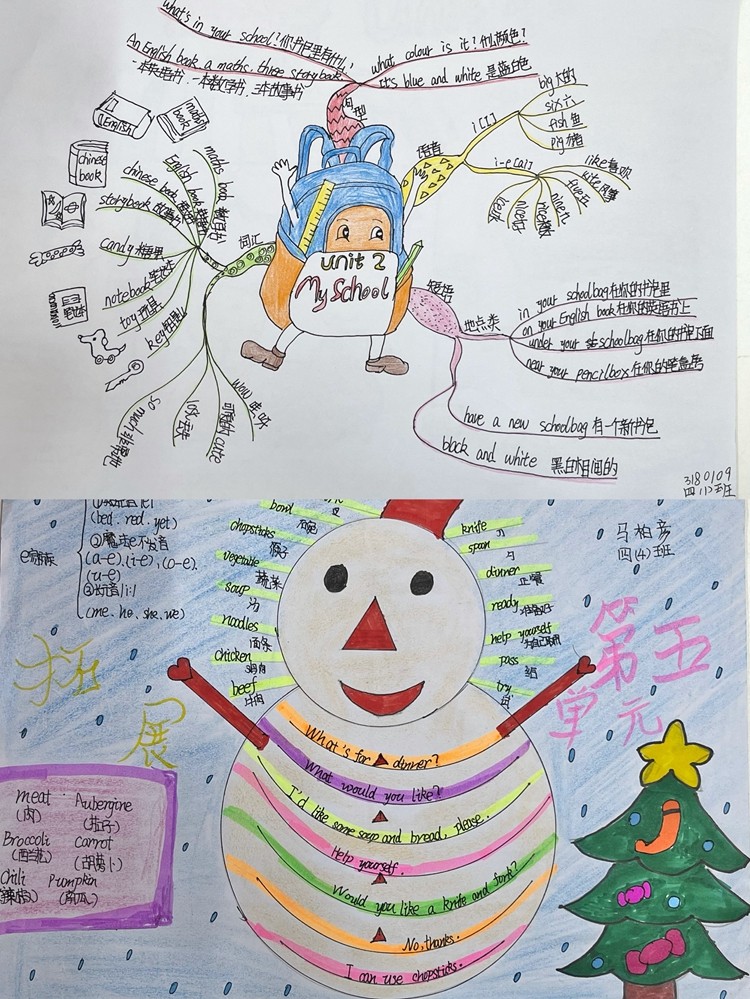 what's in your school?你书包里有什么?
An English book, a maths. three storybook
一本英语书、一本数学书、三本故事书
what colour is it?什么颜色?
It's blue and white 是蓝白色
句型
语音
i [I]
big 大的
six 六
fish 鱼
pig 猪
i-e [aI]
like 喜欢
kite 风筝
five 五
nine 九
rice
词汇
maths book 数学书
English book 英语书
chinese book
storybook 故事书
candy 糖果
notebook 笔记本
toy 玩具
key 钥匙
wow 哇，呀
cute 可爱的
lost 丢失
so much 非常地
English
maths book
chinese book
Unit 2
My School
短语
地点类
in your schoolbag 在你的书包里
on your English book 在你的英语书上
under your schoolbag 在你的书包下面
near your pencilbox 在你的铅笔盒旁
have a new schoolbag 有一个新书包
black and white 黑白相间的
3180109
四(1)班
(bed. red. yet)
②魔法e不发音
(a-e).(i-e).(o-e).
(u-e)
③长音/i:/
(me. he. she. we)
bowl
chopsticks
筷子
vegetable
蔬菜
soup
汤
noodles
面条
chicken
鸡肉
beef
牛肉
knife
刀
spoon
勺
dinner
正餐
ready
准备好
help yourself
为自己取用
pass
给
try
试
四(4)班
第五
单元
拓
展
What's for dinner?
What would you like?
I'd like some soup and bread, please.
Help yourself.
Would you like a knife and fork?
No, thanks.
I can use chopsticks.
meat Aubergine
(肉) (茄子)
Broccoli carrot
(西兰花) (胡萝卜)
Chili Pumpkin
(辣椒) (南瓜)